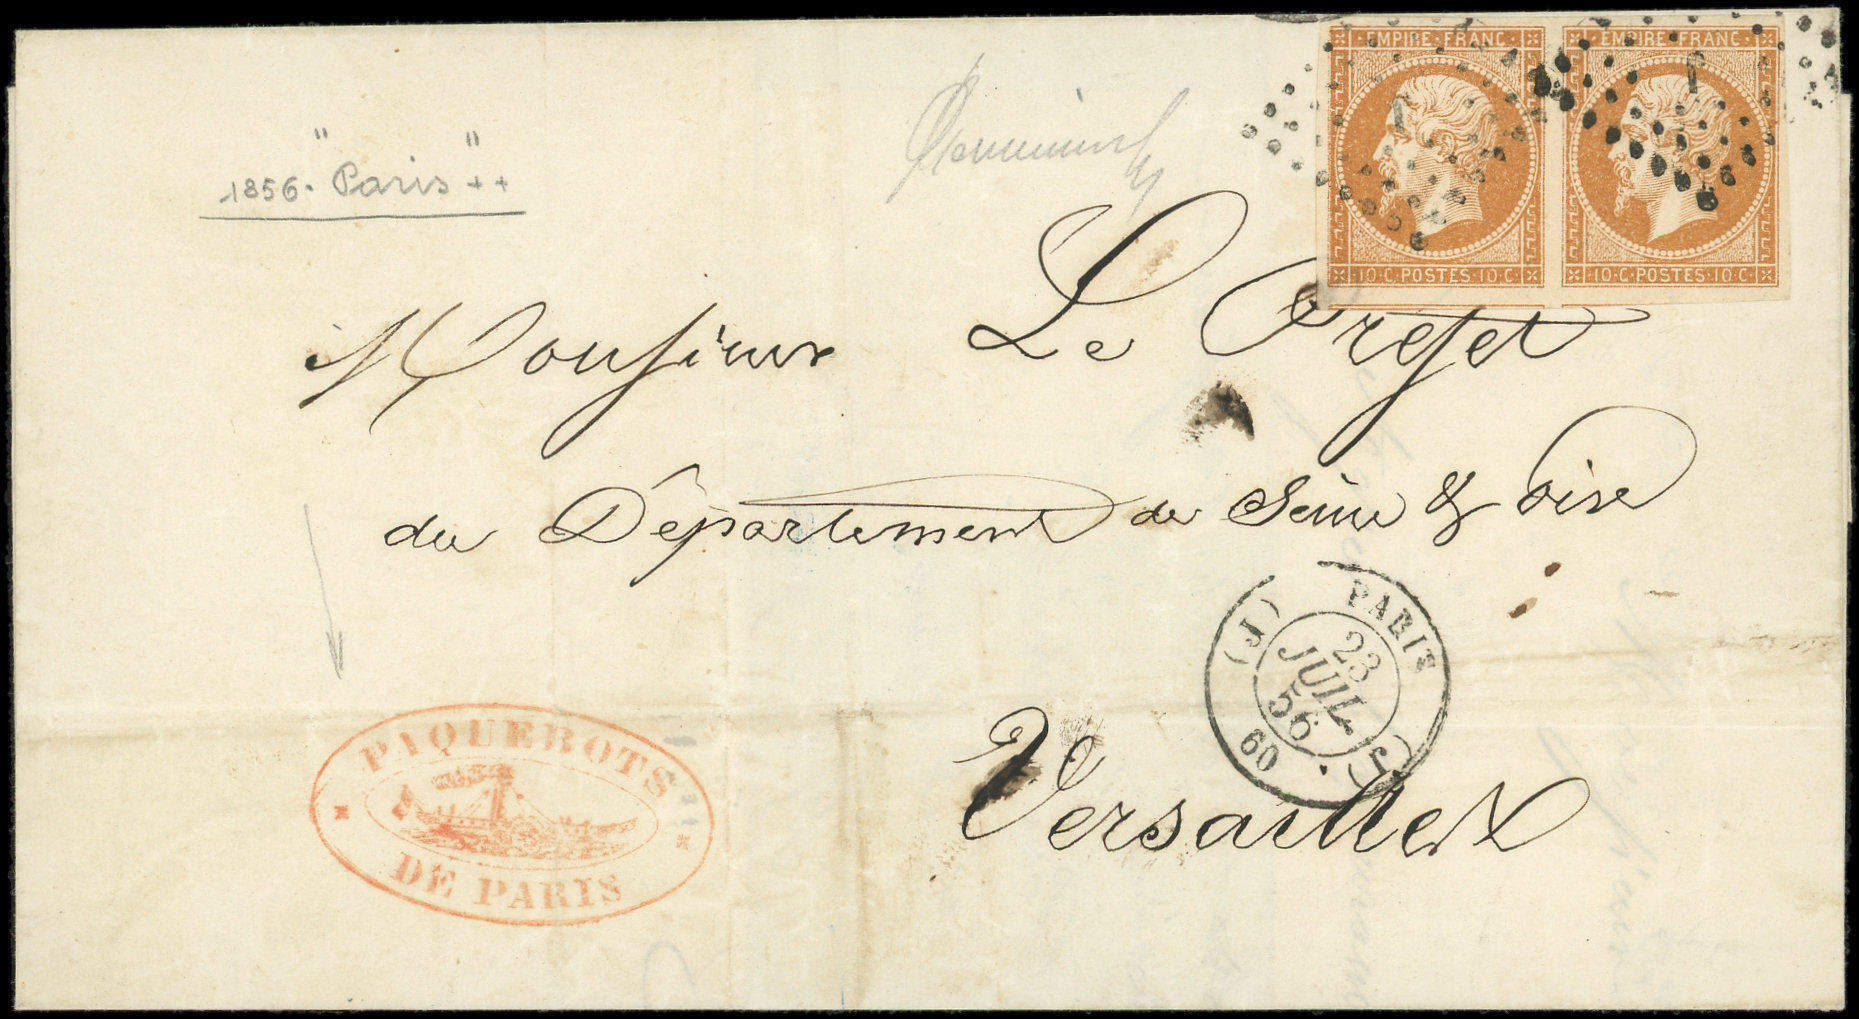 EMPIRE·FRANC· EMPIRE·FRANC·
J J
10·C·POSTES·10·C· 10·C·POSTES·10·C·
1856. "Paris" ++
Monsieur Le Préfet
du Département de Seine & Oise
Versailles
PARIS
(J) (J)
23
JUIL
56
60
PAQUEBOTS
DE PARIS